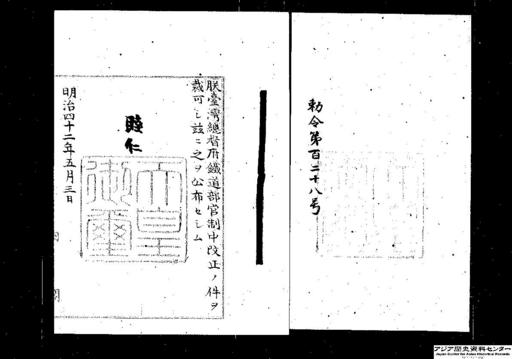 勅令第百二十八号
朕臺灣總督府鐵道部官制中改正ノ件ヲ
裁可シ茲ニ之ヲ公布セシム
睦仁
天皇御璽
明治四十二年五月三日
アジア歴史資料センター
Japan Center for Asian Historical Records